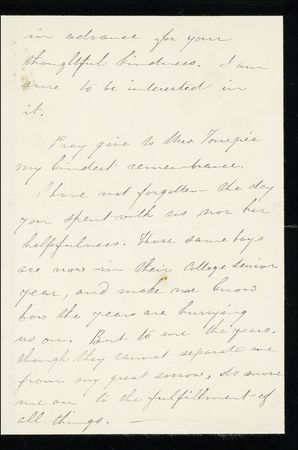 in advance for your
thoughtful kindness. I am
sure to be interested in
it.
Pray give to Mrs Tourgée
my kindest remembrance.
I have not forgotten the day
you spent with us nor her
helpfulness. Those same boys
are now in their College senior
year, and make me know
how the years are hurrying
us on. But to me the years,
though they cannot separate me
from my great sorrow, do move
me on to the fulfillment of
all things. —